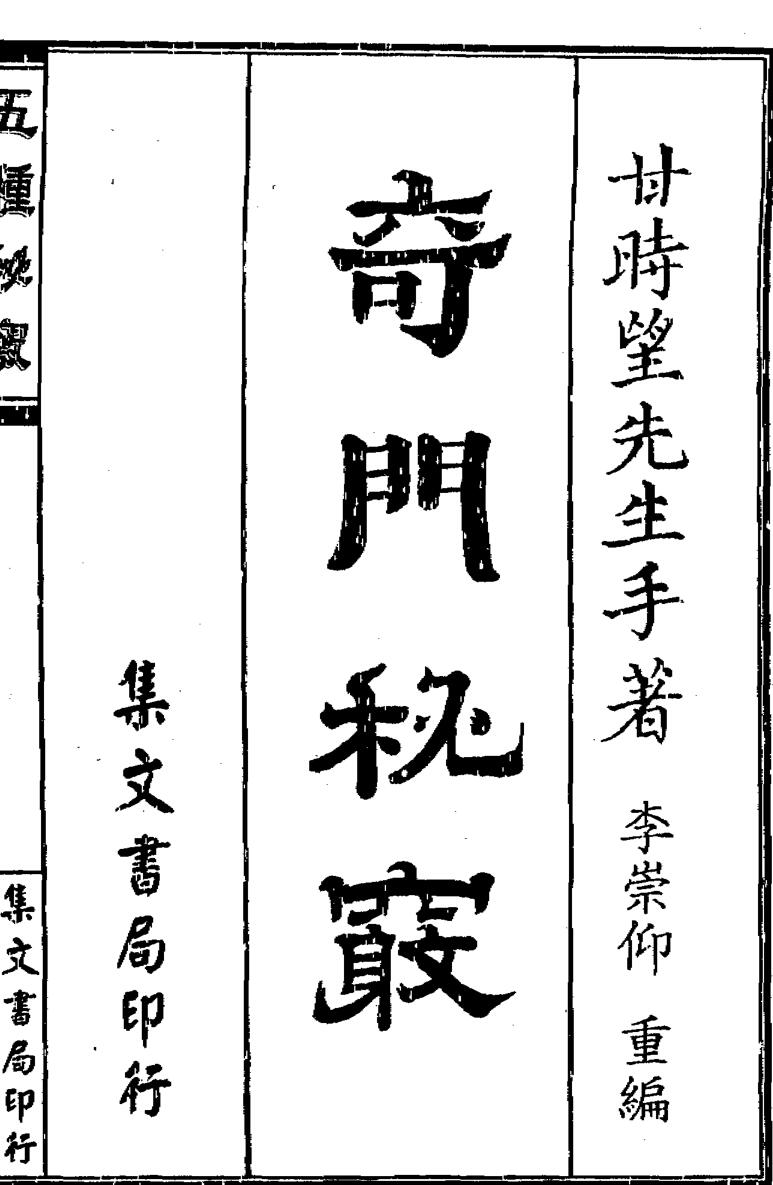 甘時望先生手著 李崇仰 重編
奇門秘竅
集文書局印行
五種秘竅
集文書局印行